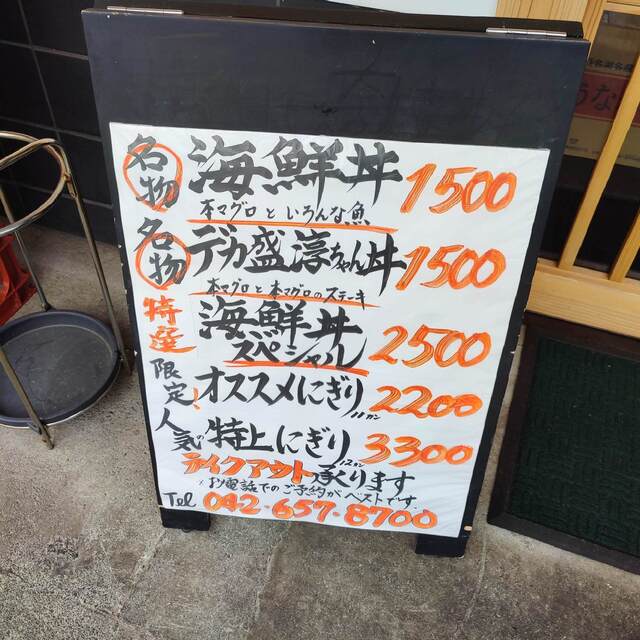 名物 海鮮丼 1500
本マグロと いろんな魚
名物 デカ盛 淳ちゃん丼 1500
本マグロと 本マグロのステーキ
特選 海鮮丼 スペシャル 2500
限定! オススメにぎり 8カン 2200
人気!! 特上にぎり 3300
テイクアウト 承ります
お電話でのご予約がベストです。
Tel 042-657-8700